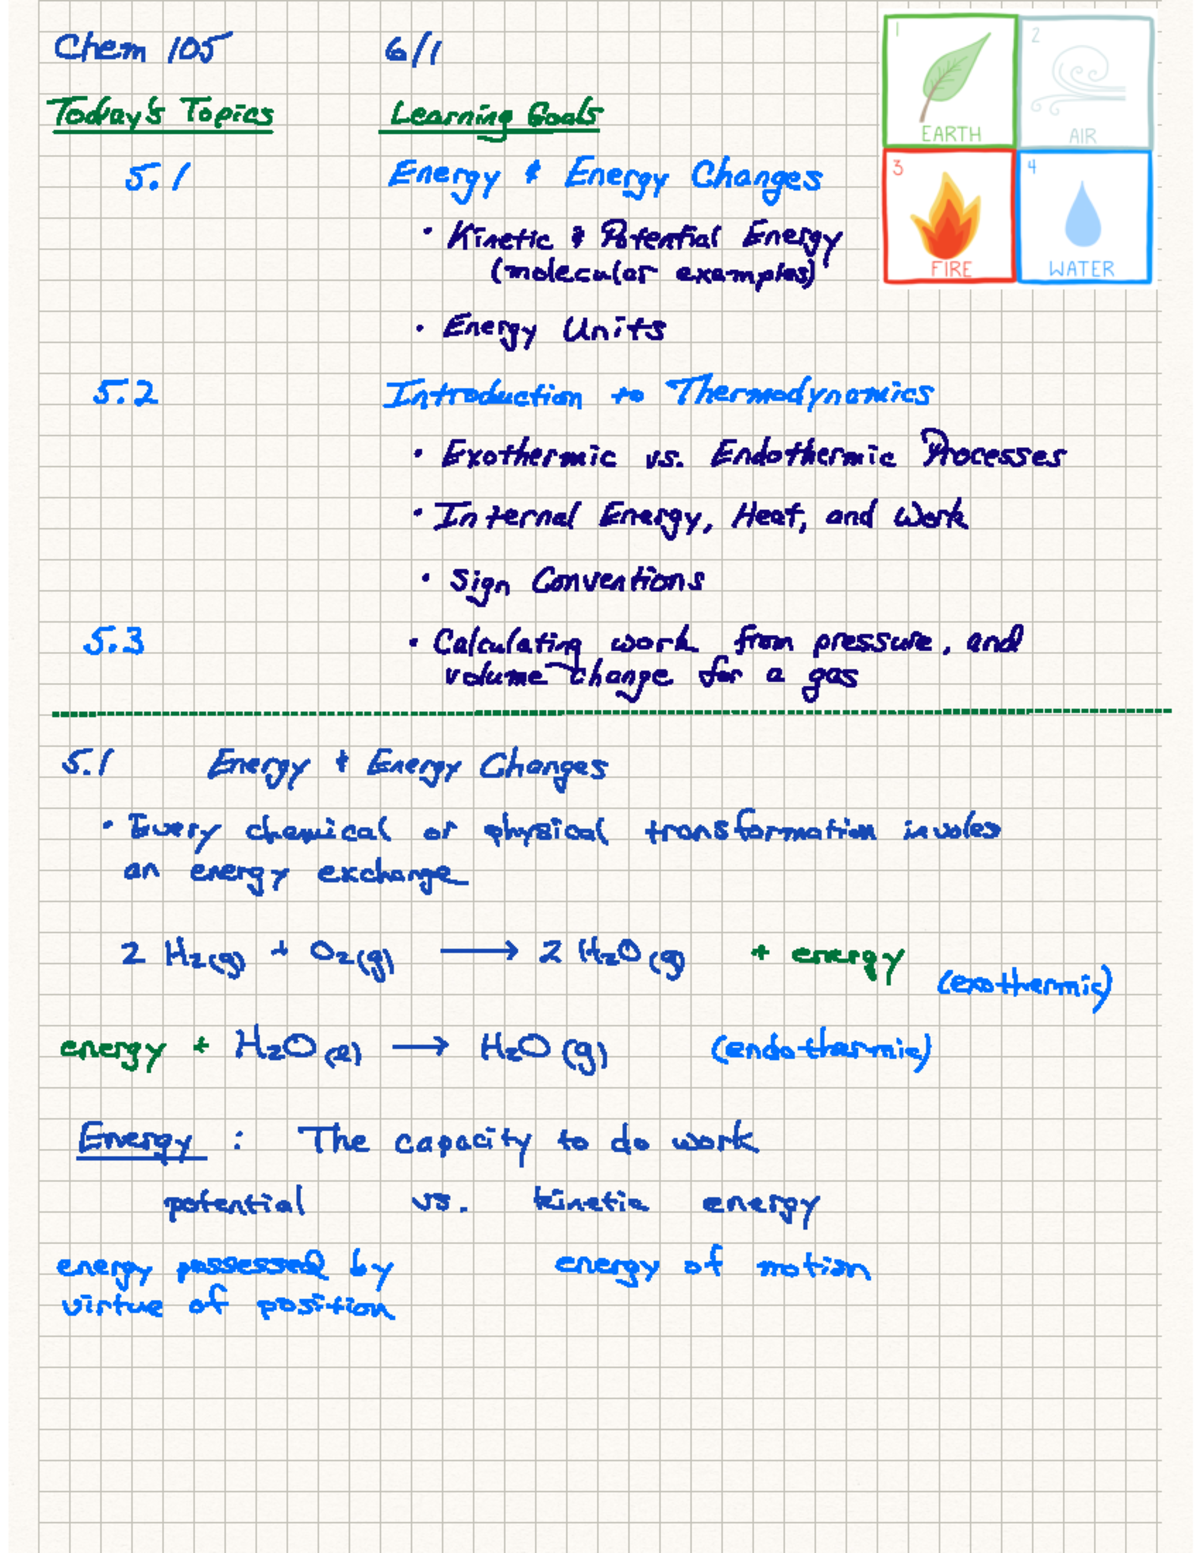 Chem 105 6/1
1 EARTH
2 AIR
3 FIRE
4 WATER
Today's Topics Learning Goals
5.1 Energy & Energy Changes
• Kinetic & Potential Energy
(molecular examples)
• Energy Units
5.2 Introduction to Thermodynamics
• Exothermic vs. Endothermic Processes
• Internal Energy, Heat, and Work
• Sign Conventions
5.3 • Calculating work from pressure, and
volume change for a gas
5.1 Energy & Energy Changes
• Every chemical or physical transformation involes
an energy exchange
2 H₂(g) + O₂(g) ⟶ 2 H₂O(g) + energy (exothermic)
energy + H₂O(l) ⟶ H₂O(g) (endothermic)
Energy : The capacity to do work
potential vs. kinetic energy
energy possessed by energy of motion
virtue of position